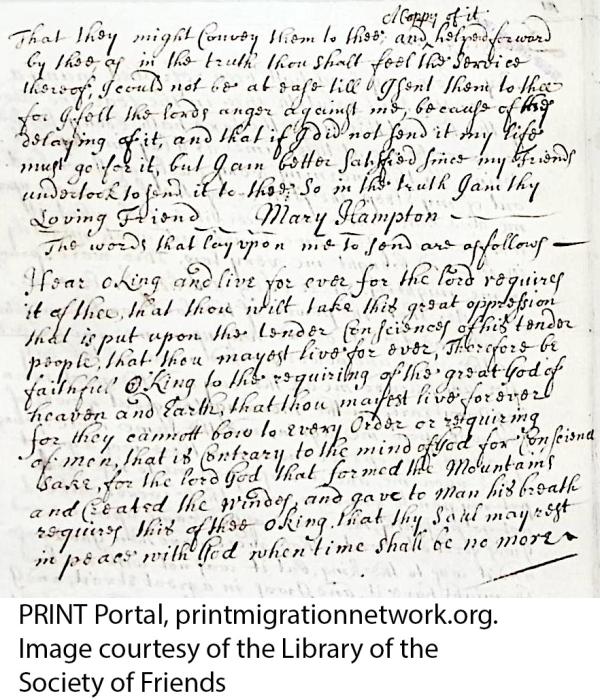 A Coppy of it
That they might Convey them to thee and helped forward
by thee as in the truth thou shalt feel the Service
thereof, I could not be at ease till I sent them to thee
for I felt the lords anger against me, because of the
delaying of it, and that if I did not send it my life
must go for it, but I am better satisfied since my Friends
undertook to send it to thee: So in the truth I am thy
Loving Friend Mary Hampton
The words that lay upon me to send are as follows
Hear o King and live for ever for the lord requires
it of thee, that thou wilt take this great oppression
that is put upon the tender Consciences of his tender
people, that thou mayest live for ever, Therefore be
faithful O King to the requiring of the great God of
heaven and Earth, that thou mayest live for ever
for they cannott bow to Every Order or requiring
of men, that is Contrary to the mind of God for Conscience
sake, for the lord God that formed the Mountains
and Created the Windes, and gave to Man his breath
requires this of thee o King, that thy Soul may rest
in peace with God when time shall be no more
PRINT Portal, printmigrationnetwork.org.
Image courtesy of the Library of the
Society of Friends